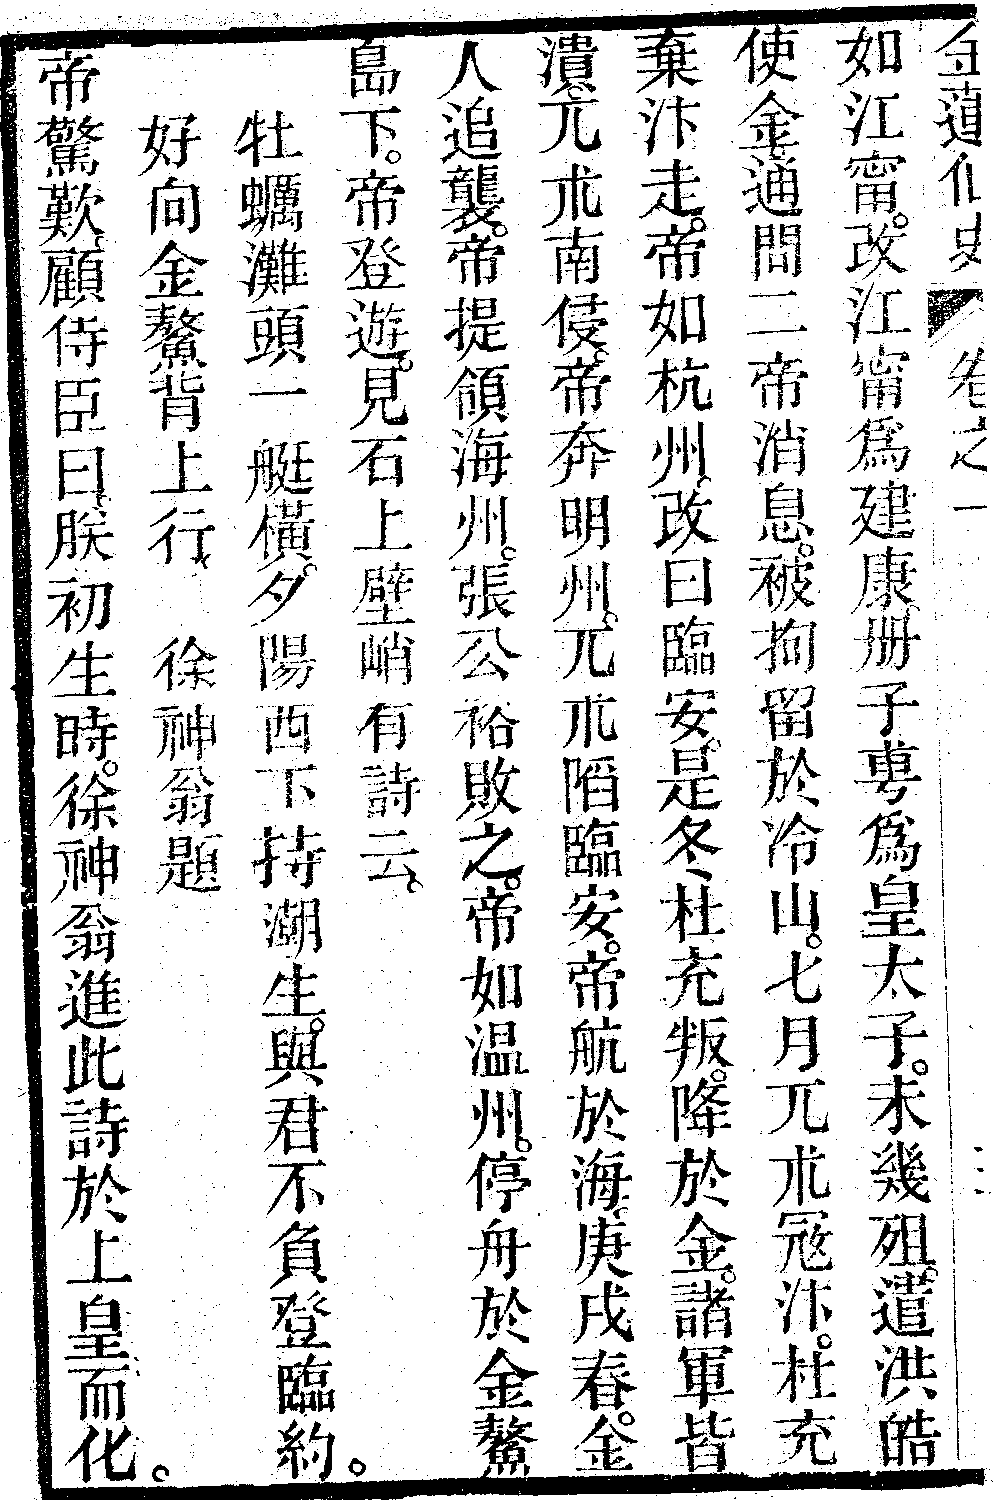 金蓮仙史　卷之一
如江甯。改江甯爲建康。册子旉爲皇太子。未幾殂。遣洪皓
使金。通問二帝消息。被拘留於冷山。七月兀朮冦汴。杜充
棄汴走。帝如杭州。改曰臨安。是冬杜充叛。降於金。諸軍皆
潰。兀朮南侵。帝奔明州。兀朮陷臨安。帝航於海。庚戌春。金
人追襲。帝提領海州。張公裕敗之。帝如温州。停舟於金鰲
島下。帝登遊。見石上壁峭有詩云。
牡蠣灘頭一艇橫。夕陽西下待潮生。與君不負登臨約。
好向金鰲背上行。　徐神翁題
帝驚歎。顧侍臣曰。朕初生時。徐神翁進此詩於上皇而化。